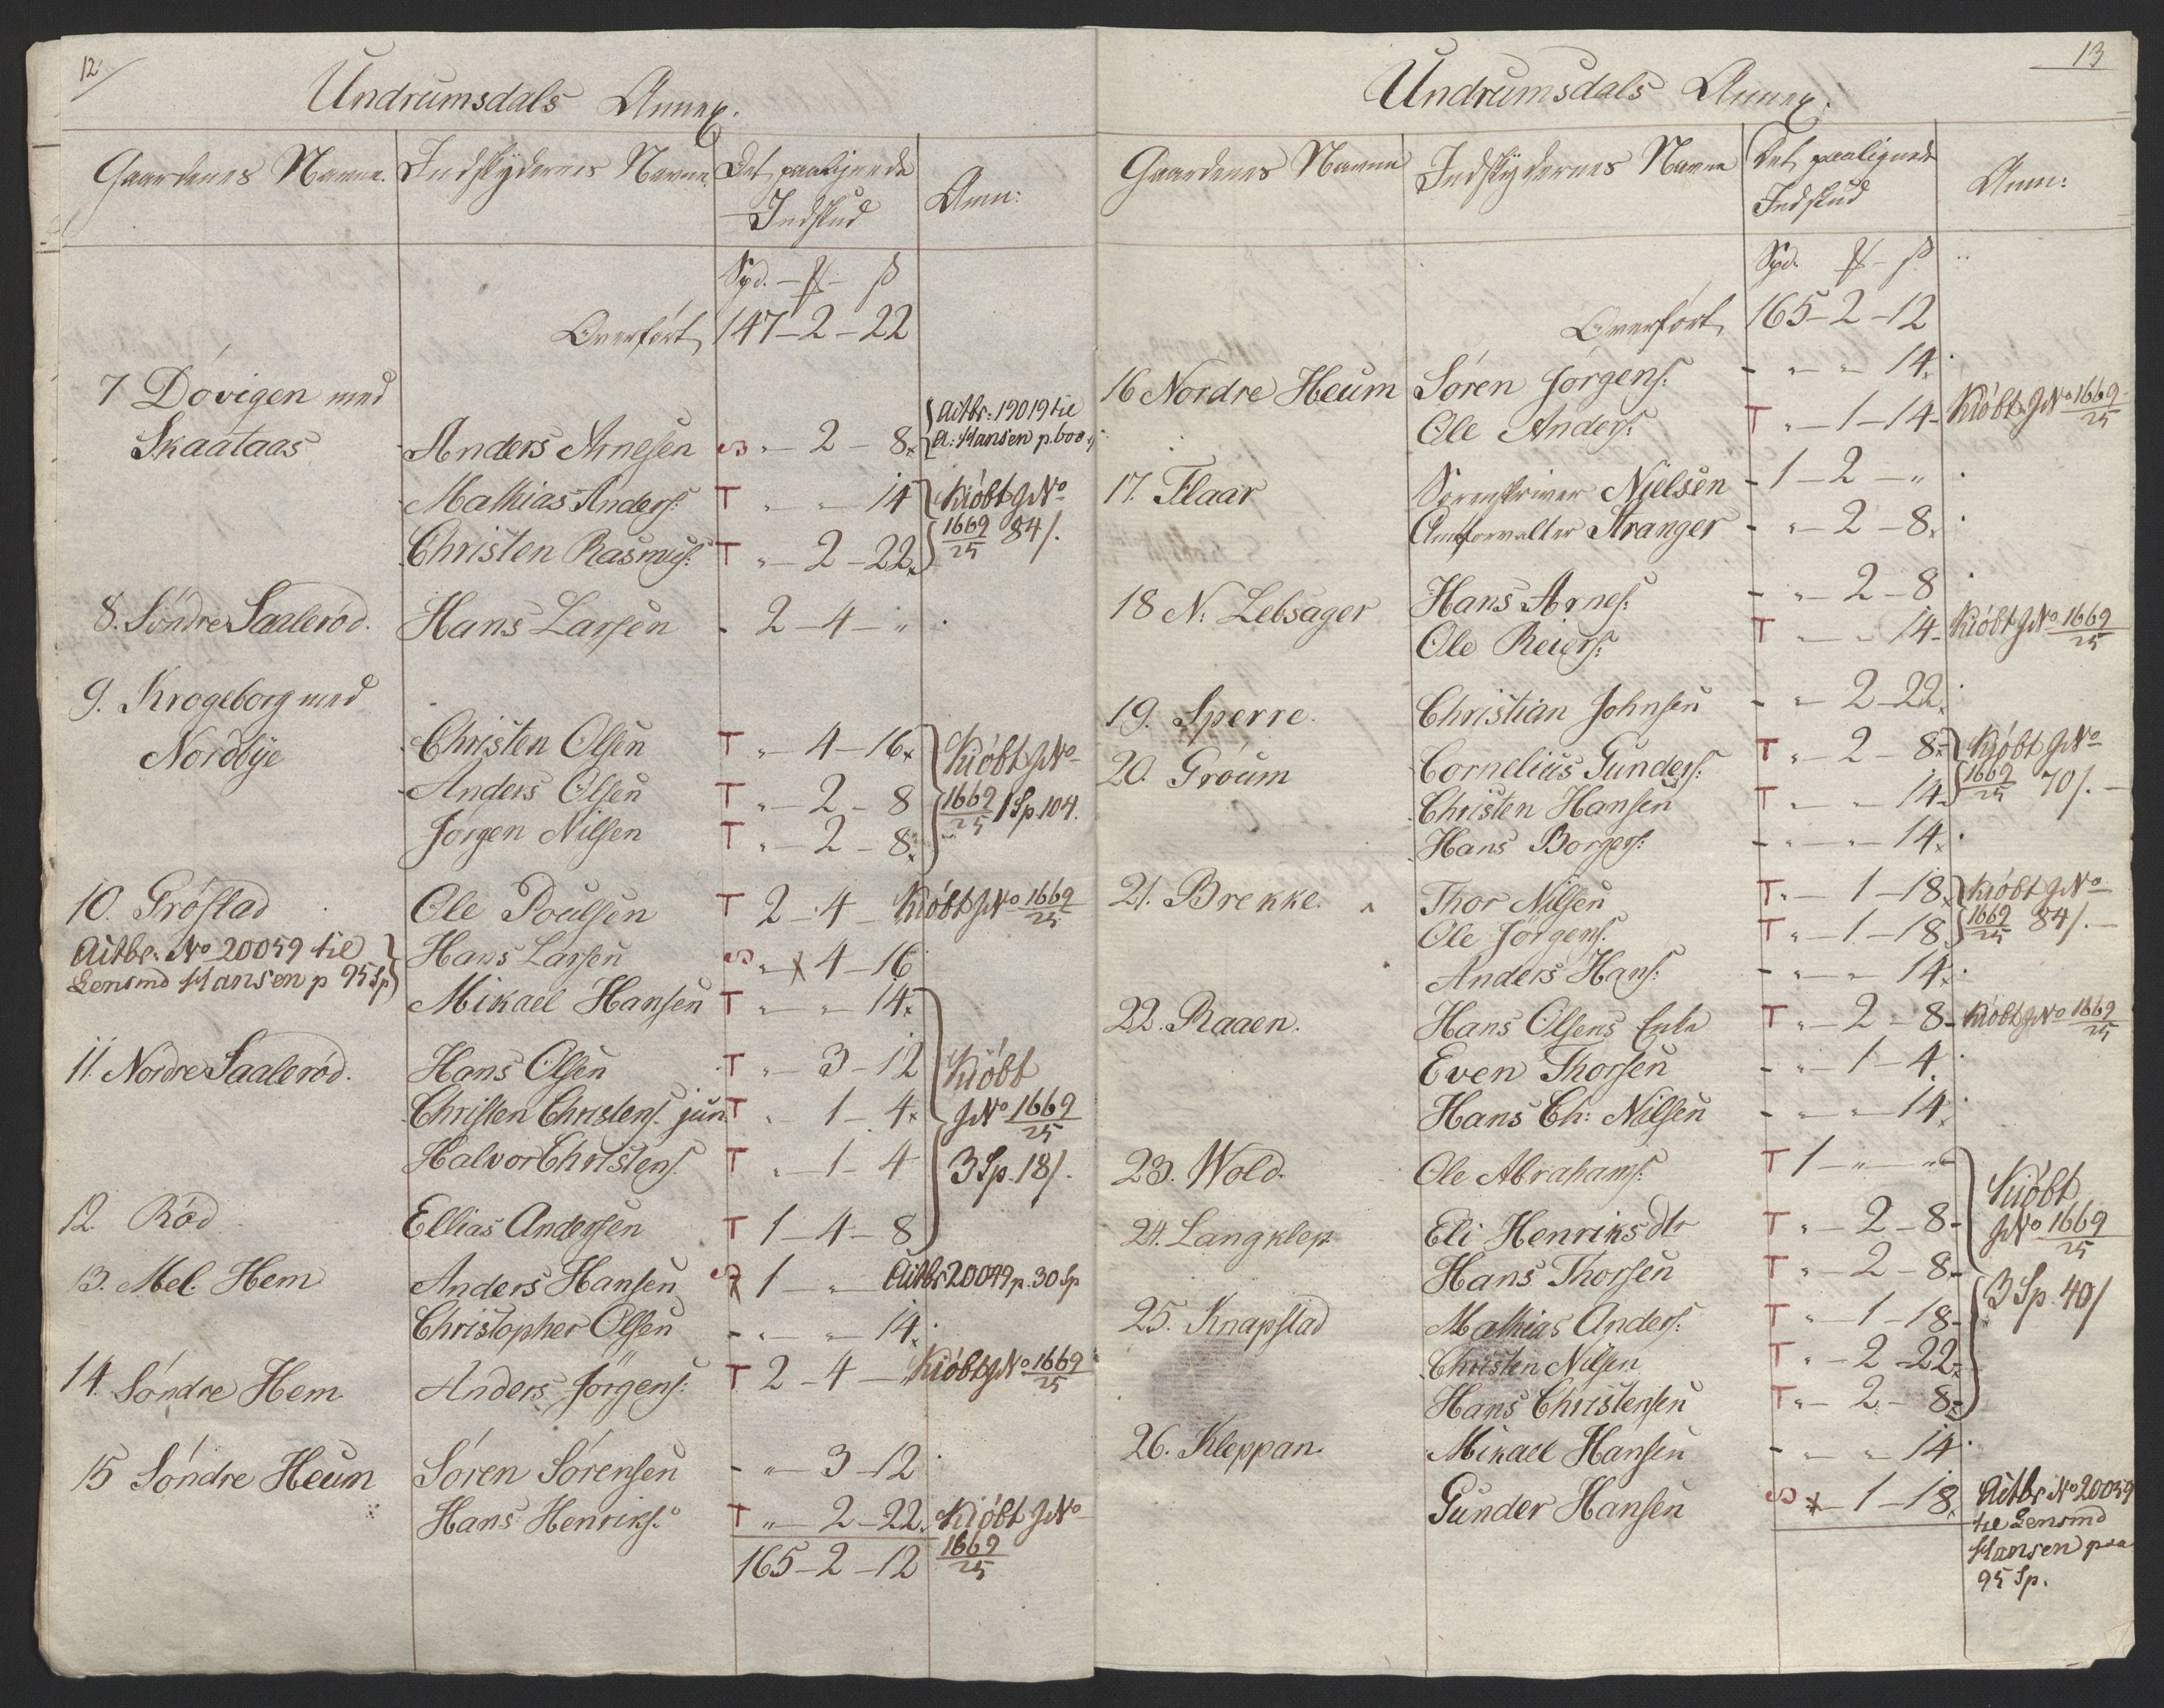 12
Undrumsdals Annex.
Gaardenes Navne. Indskydernes Navne. Det paalignede Indskud Anm:
Spd. — ₰ — ß
Overført 147 – 2 – 22
7 Dövigen med
Skaataas Anders Arnesen S „ – 2 – 8. Aitbr: 19019 til A: Hansen p. 600
Mathias Anders: T „ – „ 14 Kiöbt J No
Christen Rasmus: T „ – 2 – 22. 1669/25 84/.
8. Söndre Saaleröd. Hans Larsen - 2 – 4 – „ .
9. Krogeborg med
Nordbye Christen Olsen T „ – 4 – 16. Kiöbt J No
Anders Olsen T „ – 2 – 8 1669/25 1 Sp. 104.
Jörgen Nilsen T „ – 2 – 8.
10. Gröstad Ole Poulsen T 2 – 4 – Kiöbt J No 1669/25
Aitbr. No 20059 til Hans Larsen S „ x 4 – 16
Lensmd Hansen p 95 Sp
Mikael Hansen T „ – „ 14.
11. Nordre Saaleröd. Hans Olsen T „ – 3 – 12 Kiöbt
Christen Christens. jun. T „ 1 – 4. J No 1669/25
Halvor Christens. T „ – 1 – 4 3 Sp. 18/.
12. Röd Ellias Andersen T 1 – 4 – 8
13. Mel. Hem Anders Hansen S 1 – „ – Aitbr 20049 p. 30 Sp
Christopher Olsen - „ – „ 14.
14. Söndre Hem Anders Jörgens: T 2 – 4 – Kiöbt J No 1669/25
15 Söndre Heum Sören Sörensen - „ – 3 – 12
Hans Henriks: T „ – 2 – 22. Kiöbt J No
165 – 2 – 12 1669/25
13
Undrumsdals Annex.
Gaardenes Navne Indskydernes Navne Det paalignede Indskud Anm:
Spd. ₰ – ß
Overført 165 – 2 – 12
16 Nordre Heum Sören Jörgens: - „ „ 14.
Ole Anders: T „ – 1 – 14 – Kiöbt J No 1669/25
17. Flaar Sorenskriver Nielsen - 1 – 2 – „ .
Amtforvalter Stranger - „ – 2 – 8. .
18 N: Lebsager Hans Arnes: - „ – 2 – 8 .
Ole Reiers: T „ – „ 14 – Kiöbt J No 1669/25
19. Sperre. Christian Johnsen - „ – 2 – 22 .
20. Gröum Cornelius Gunders: T „ – 2 – 8. Kiöbt J No
Christen Hansen T „ – „ 14. 1669/25 70/. –
Hans Borgers: - „ – „ – 14. .
21. Brekke. Thor Nilsen T „ – 1 – 18. Kiöbt J No
Ole Jörgens. T „ – 1 – 18. 1669/25 84/. –
Anders Hans: - „ – „ 14. .
22. Raaen. Hans Olsens Enke T „ – 2 – 8 – Kiöbt J No 1669/25
Even Thorsen - „ – 1 – 4. .
Hans Ch: Nilsen - „ – „ – 14. .
23. Wold. Ole Abrahams: T 1 – „ – „ Kiöbt
24. Langklep Eli Henriksdtr T „ – 2 – 8 – J No 1669/25
Hans Thorsen T „ – 2 – 8 – 3 Sp. 40/
25. Knapstad Mathias Anders: T „ – 1 – 18 –
Christen Nilsen T „ – 2 – 22 –
Hans Christensen T „ – 2 – 8 –
26. Kleppan. Mikael Hansen - „ – „ 14 .
Gunder Hansen S x – 1 – 18. Aitbr No 20059
til Lensmd
Hansen paa
95 Sp.